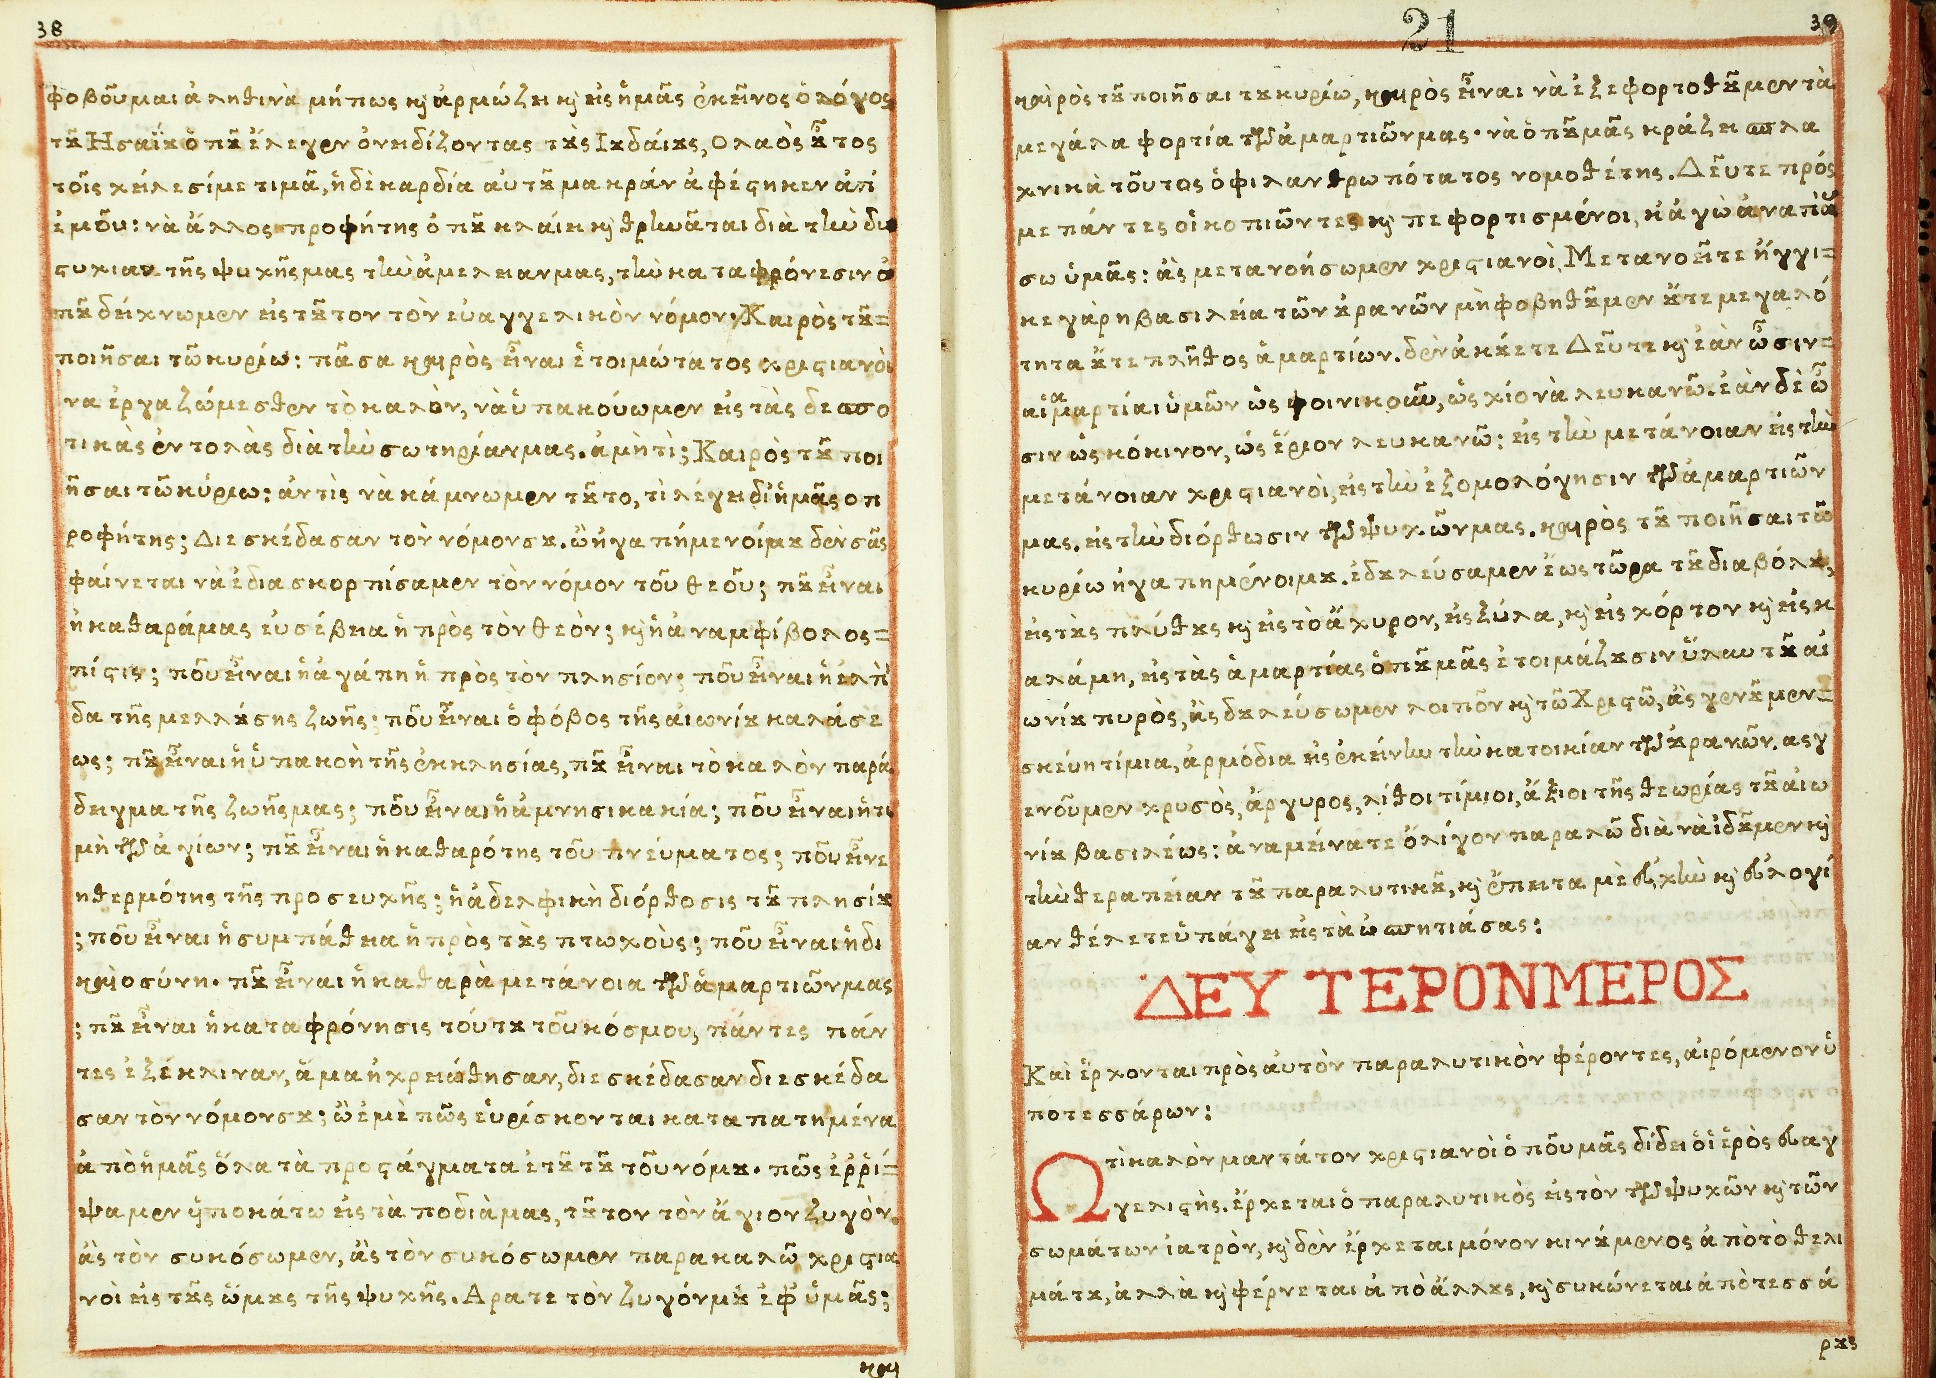 38
φοβοῦμαι ἀληθινὰ μήπως κ̀ ἁρμόζει κ̀ εἰς ἡμᾶς ἐκεῖνος ὁ λόγος
τȣ͂ Ησαΐȣ ὁ πȣ͂ ἔλεγεν ὀνειδίζοντας τȣ̀ς Ιȣδαίȣς, Ο λαὸς ȣ͂τος
τοῖς χείλεσί με τιμᾶ, ἡ δὲ καρδία αὐτȣ͂ μακράν ἀφέςηκεν ἀπ̓
ἐμοῦ: νὰ ἄλλος προφήτης ὁ πȣ͂ κλαίει κ̀ θρηνᾶται διὰ τὴν δυ
ςυχίαν τῆς ψυχῆς μας τὴν ἀμέλειαν μας, τὴν καταφρόνεσιν ὁ
πȣ͂ δείχνωμεν εἰς τȣ͂τον τὸν εὐαγγελικὸν νόμον, Καιρὸς τȣ͂=
ποιῆσαι τῶ κυρίω: πᾶσα καιρὸς εἶναι ἑτοιμώτατος χριςιανοὶ
να ἐργαζώμεσθεν τὸ καλὸν, νὰ ὑπακούωμεν εἰς τὰς δεσπο
τικὰς ἐντολὰς διὰ τὴν σωτηρίαν μας. ἀμὴ τὶ; Καιρὸς τȣ͂ ποι
ῆσαι τῶ κύριω: ἀντὶς νὰ κάμνωμεν τȣ͂το, τὶ λέγει δἰ ἡμᾶς ο π
ροφήτης; Διεσκέδασαν τὸν νόμον σȣ. ὢ ἠγαπήμενοί μȣ δὲν σᾶς
φαίνεται νὰ ἐδιασκορπίσαμεν τὸν νόμον τοῦ θεοῦ; πȣ͂ εἶναι
ἡ καθαρά μας ευσέβεια ἡ πρὸς τὸν θεὸν; κ̀ ἡ ἀναμφίβολος=
πίςις; ποῦ εἶναι ἡ ἀγάπη ἡ πρὸς τὸν πλησίον; ποῦ εἶναι ἡ ἐλπὶ
δα τῆς μελλȣ́σης ζωῆς; ποῦ εἶναι ὁ φόβος τῆς αἰωνίȣ καλάσε
ως; πȣ͂ εἶναι ἡ ὑπακοὴ τῆς ἐκκλησίας, πȣ͂ εἶναι τὸ καλὸν παρά
δειγμα τῆς ζωῆς μας; ποῦ εἶναι ἡ ἀμνησικακία; ποῦ εἶναι ἡ τι
μὴ τῶν ἁγίων; πȣ͂ εἶναι ἡ καθαρότης τοῦ πνεύματος; ποῦ εἶνε
η θερμότης τῆς προσευχῆς; ἡ ἀδελφικὴ διόρθοσις τȣ͂ πλησίȣ
; ποῦ εἶναι ἡ συμπάθεια ἡ πρὸς τȣ̀ς πτωχοὺς; ποῦ εἶναι ἡ δι
καιοσύνη. πȣ͂ εἶναι ἡ καθαρὰ μετάνοια τῶν ἁμαρτιῶν μας
; πȣ͂ εἶναι ἡ καταφρόνησις τούτȣ τοῦ κόσμου, πάντες πάν
τες ἐξέκλιναν, ἅμα ἠχρειώθησαν, διεσκέδασαν διεσκέδα
σαν τὸν νόμον σȣ; ὢ ἐμὲ πῶς εὑρίσκονται καταπατημένα
ἀπὸ ἡμᾶς ὅλα τὰ προςάγματα ἐτȣ͂τȣ͂ τοῦ νόμȣ. πῶς ἐρρί=
ψαμεν ὑποκάτω εἰς τὰ ποδιὰ μας, τȣ͂τον τὸν ἅγιον ζυγὸν.
ἂς τὸν συκόσωμεν, ἂς τὸν συκόσωμεν παρακαλῶ χριςια
νοὶ εἰς τȣ͂ς ὤμȣς τῆς ψυχῆς. Αρατε τὸν ζυγόν μȣ ἐφ̓ ὑμᾶς;
και
21
39
καὶρὸς τȣ͂ ποιῆσαι τω κυρίω, καιρὸς εἶναι νὰ ἐξεφορτοθȣ͂μεν τὰ
μεγάλα φορτία τῶν ἁμαρτιῶν μας. νὰ ὁ πȣ͂ μᾶς κράζει σπλα
χνικὰ τοῦτος ὁ φιλανθρωπότατος νομοθέτης. Δεῦτε πρός
με πάντες οἱ κοπιῶντες κ̀ πεφορτισμένοι, κἀγὼ ἀναπάυ
σω ὑμᾶς: ἂς μετανοήσωμεν χριςιανοὶ, Μετανοεῖτε ἤγγι=
κε γὰρ η βασιλεία τῶν ȣ̓ρανῶν μὴ φοβηθȣ͂μεν ȣ̓́τε μεγαλό
τητα ȣ̓́τε πλῆθος ἁμαρτίων. δὲν ἀκȣ́ετε Δεῦτε κ̀ ἐὰν ὦσιν=
αἱ ἁμαρτίαι ὑμῶν ὡς φοινικοῦν, ὡς χίονὰ λευκανῶ. ἐὰν δὲ ὦ
σιν ὡς κόκινον, ὡς ἔριον λευκανῶ: εἰς τὴν μετάνοιαν εἰς τὴν
μετάνοιαν χριςιανοὶ, εἰς τὴν ἐξομολόγησιν τῶν ἁμαρτιῶν
μας. εἰς τὴν διόρθωσιν τῶν ψυχῶν μας. καιρὸς τȣ͂ ποιῆσαι τῶ
κυρίω ἠγαπημένοι μȣ. ἐδȣλεύσαμεν ἕως τῶρα τȣ͂ διαβόλȣ,
εἰς τȣ̀ς πλύθȣς κ̀ εἰς τὸ ἄχυρον, εἰς ξύλα, κ̀ εἰς χόρτον κ̀ εἰς κ
αλάμη, εἰς τὰς ἁμαρτίας ὁ πȣ͂ μᾶς ἑτοιμάζȣσιν ὕλαν τȣ͂ αἰ
ωνίȣ πυρὸς, ἂς δȣλεύσωμεν λοιπὸν κ̀ τῶ Χριςῶ, ἂς γενȣ͂μεν=
σκέυη τίμια, ἁρμόδια εἰς ἐκείνην τὴν κατοικίαν τῶν ȣ̓ρανῶν. ας γ
ενοῦμεν χρυσὸς, ἄργυρος, λίθοι τίμιοι, ἄξιοι τῆς θεωρίας τȣ͂ αἰω
νίȣ βασιλέως: ἀναμείνατε ὀλίγον παραλῶ διὰ νὰ ἰδȣ͂μεν κ̀
τὴν θεραπείαν τȣ͂ παραλυτικȣ͂, κ̀ ἔπειτα μὲ εὐχὴν κ̀ εὐλογί
αν θέλετε ὑπάγει εἰς τὰ ὠσπητιά σας:
ΔΕΥΤΕΡΟΝ ΜΕΡΟΣ
Καὶ ἔρχονται πρὸς αὐτὸν παραλυτικὸν φέροντες, αἰρόμενον ὑ
πο τεσσάρων:
Ω τὶ καλὸν μαντάτον χριςιανοὶ ὁ ποῦ μᾶς δίδει ὁ ἱερὸς εὐαγ
γελιςὴς. ἔρχεται ὁ παραλυτικὸς εἰς τὸν τῶν ψυχῶν κ̀ τῶν
σωμάτων ἰατρὸν, κ̀ δὲν ἔρχεται μόνον κινȣ́μενος ἀπὸ τὸ θελι
μά τȣ, ἀλλὰ κ̀ φέρνεται ἀπὸ ἄλλȣς, κ̀ συκώνεται ἀπὸ τεσσά
ρȣς